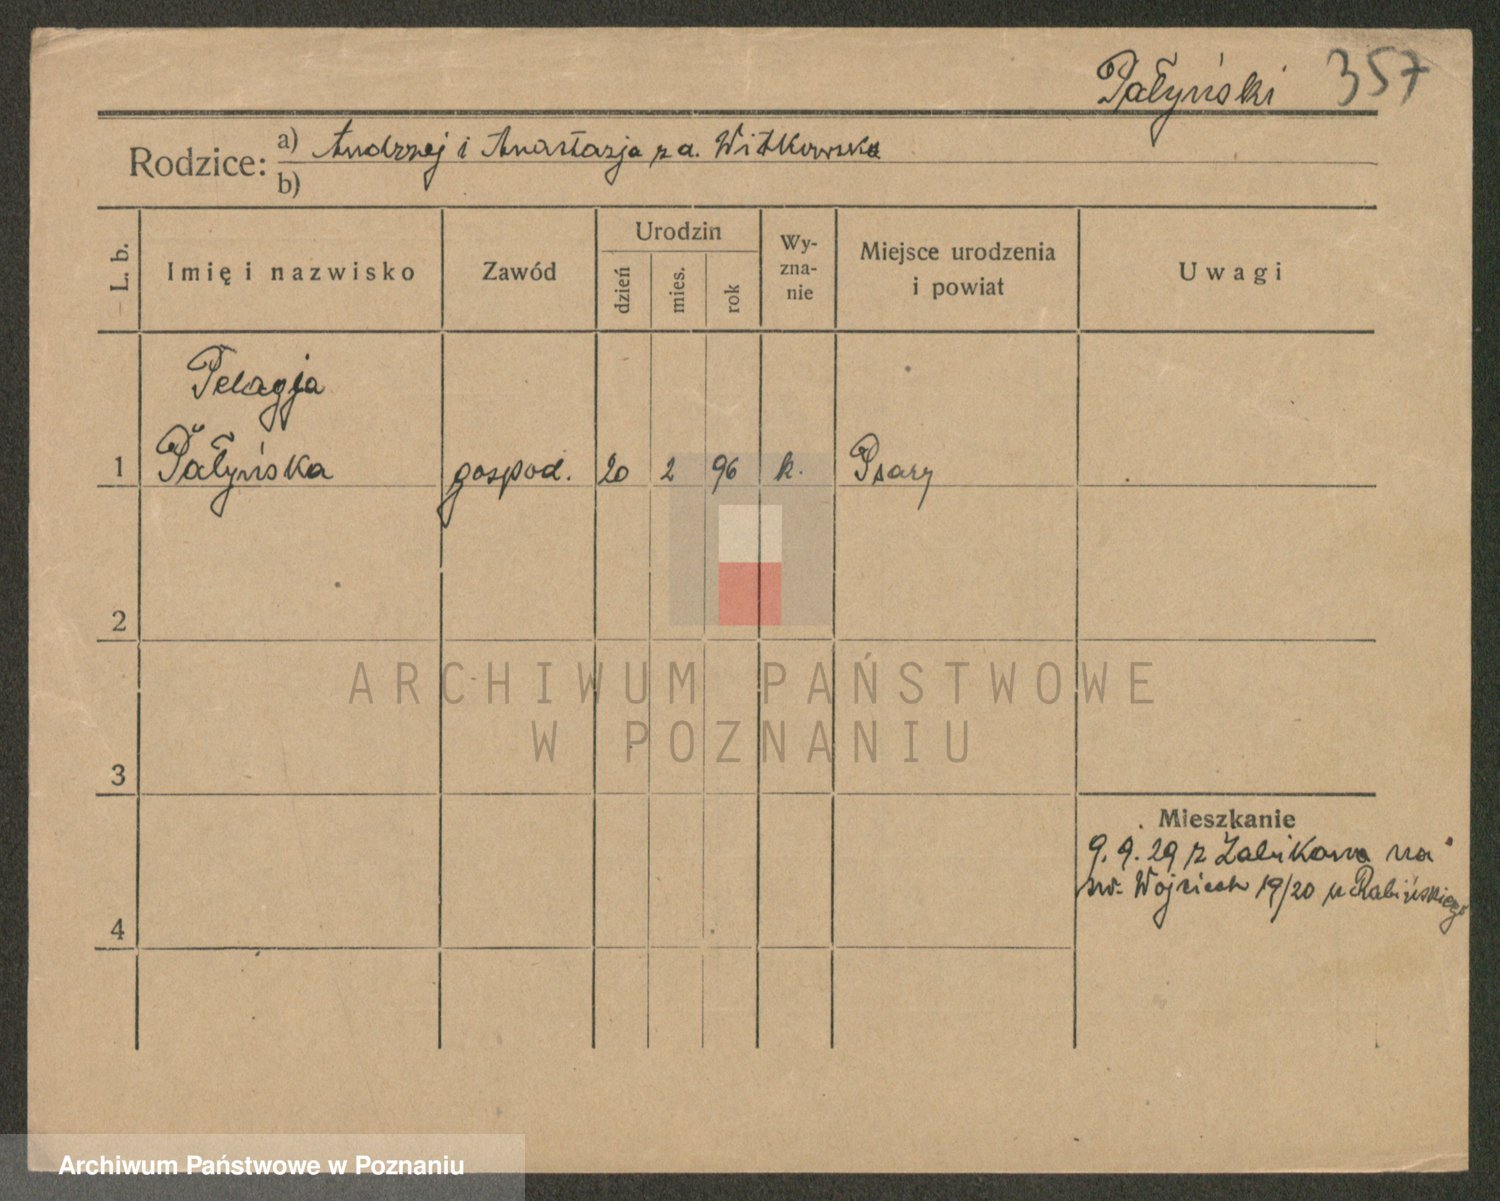 Pałyński 357
Rodzice: a) Andrzej i Anastazja z d. Witkowska
b)
L. b. Imię i nazwisko Zawód Urodzin dzień mies. rok Wy-zna-nie Miejsce urodzenia i powiat Uwagi
Pelagja
1 Pałyńska gospod. 20 2 96 k. Psary
2
ARCHIWUM PAŃSTWOWE
W POZNANIU
3
Mieszkanie
9. 9. 29 z Żabikowa na
św. Wojciech 19/20 u Rabińskiego
4
Archiwum Państwowe w Poznaniu